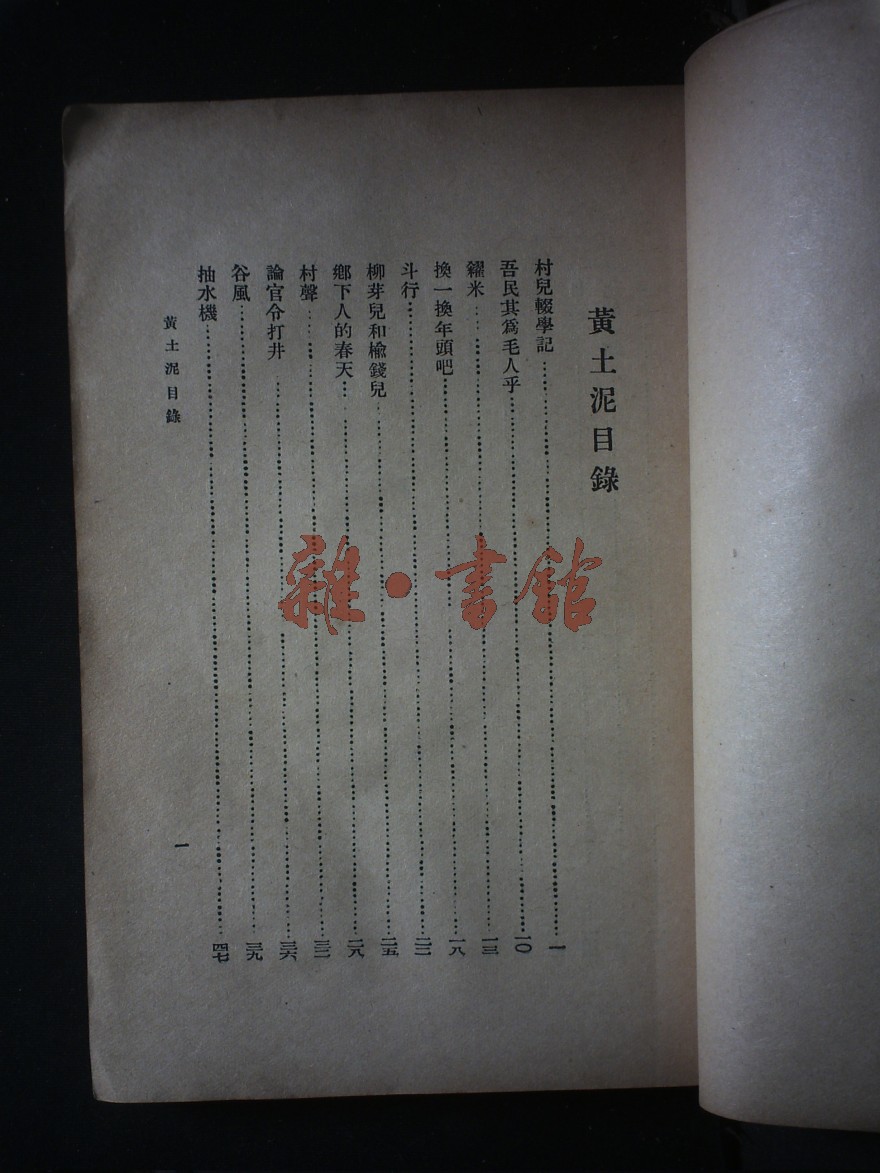 黃土泥目錄
村兒輟學記……一
吾民其爲毛人乎……一〇
糴米……一三
換一換年頭吧……一八
斗行……二二
柳芽兒和楡錢兒……二五
鄕下人的春天……二八
村聲……三二
論官令打井……三六
谷風……三九
抽水機……四七
黃土泥目錄
一
雜·書館